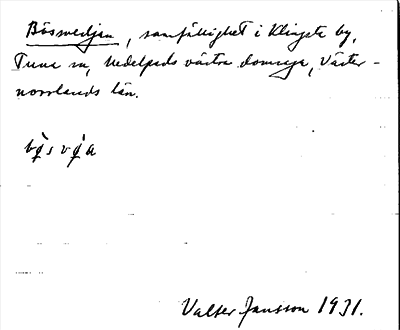 Bösvedjan, samfällighet i Klingsta by,
Tuna sn, Medelpads västra domsaga, Väster-
norrlands län.
Valter Jansson 1931.